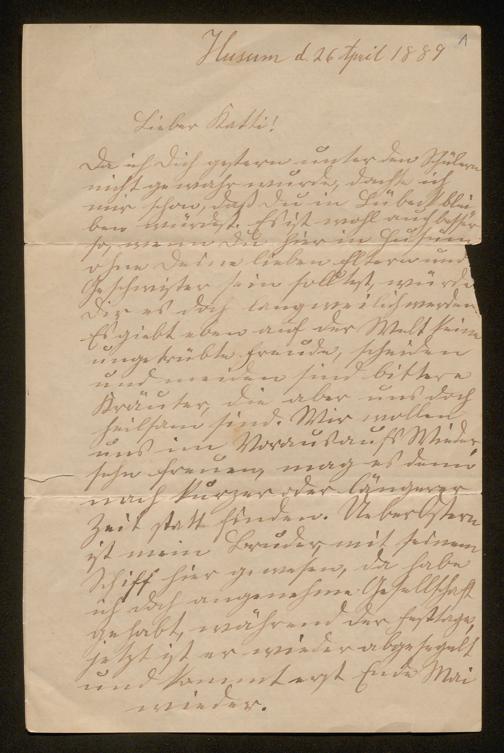 1
Husum d. 26 April 1889
Lieber Katti!
Da ich Dich gestern unter den Schülern
nicht gewahr wurde, dachte ich
mir schon, daß Du in Lübeck blei-
ben würdest. Es ist wohl auch besser
so, wenn Du hier in Husum
ohne Deine lieben Eltern und
Geschwister sein solltest, würde
Dir es doch langweilich werden.
Es giebt eben auf der Welt keine
ungetrübte Freude, scheiden
und meiden sind bittere
Kräuter, die aber uns doch
heilsam sind. Wir wollen
uns im Voraus aufs Wieder
sehn freuen, mag es denn
nach kurzer oder längerer
Zeit statt finden. Ueber Ostern
ist mein Bruder, mit seinem
Schiff hier gewesen, da habe
ich doch angenehme Gesellschaft
gehabt, während der Festtage,
jetzt ist er wieder abgesegelt
und kommt erst Ende Mai
wieder.